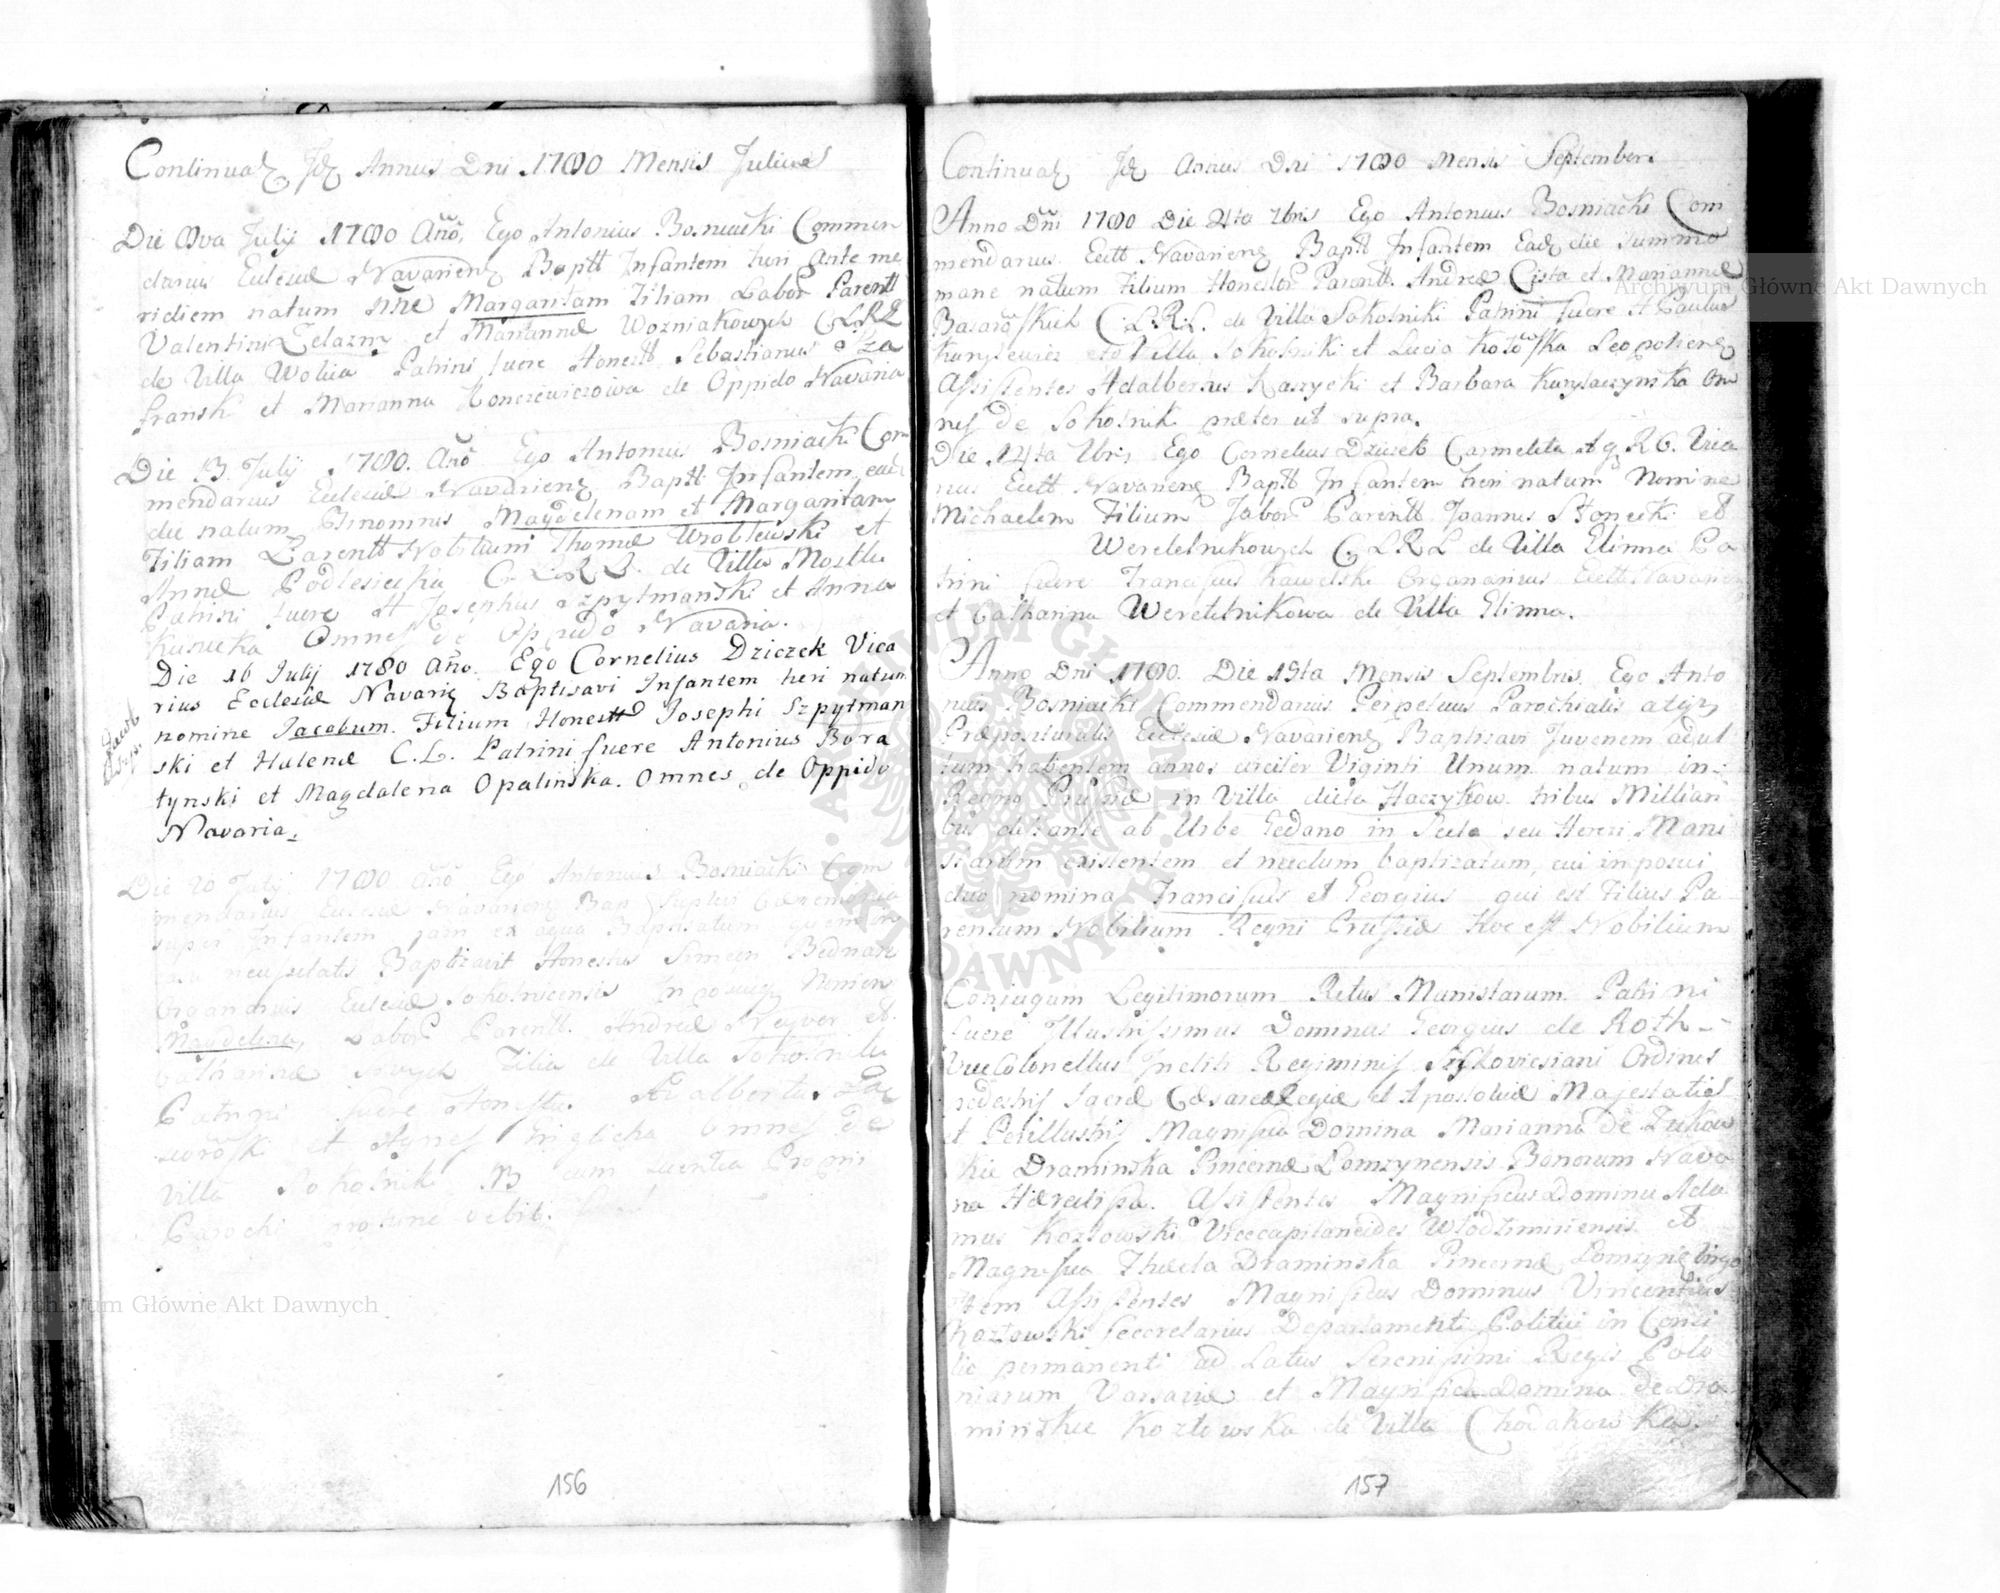 Continuat Jdz Annus Dni 1780 Mensis Julius
Die 8va July 1780 Año, Ego Antonius Bosniacki Commen
darius Eclesiæ Navarienz Baptt Infantem heri ante me
ridiem natum nne Margaritam Filiam Labor Parentt
Valentini Zelazny et Mariannæ Wozniakowych C.L.R.L
de Villa Wolica Patrini fuere Honestt Sebastianus
fransk et Marianna Honcziewiczowa de Oppido Navaria
Die 13 July 1780. Año Ego Antonius Bosniacki Com
mendarius Eclesiæ Navarienz Baptt Infantem eadz
die natum Binomnus Magdelenam et Margaritam
Filiam Parentt Nobilium Thomæ Wroblewski et
Annæ Podlesiecka C. L.R L. de Villa Mostki
Patrini fuere H Josephus Szpytmański et Anna
Kusnicka Omnes de Oppido Navaria.
Die 16 July 1780 Año. Ego Cornelius Dziczek Vica
rius Ecclesiæ Navariz Baptisavi Infantem heri natum
nomine Jacobum. Filium Honestt Josephi Szpytman
ski et Halenæ C.L. Patrini fuere Antonius Bora
tynski et Magdalena Opalinska. Omnes de Oppido
Navaria.
Jacob
Szp.
Die 20 July 1780 Año Ego Antonius Bosniacki Com
mendarius Eclesiæ Navarienz Bap Suplevi Cæremonias
super Infantem jam ex aqua Baptisatum quem in
casu necessitatis Baptizavit Honestus Simeon Bednarz
Organarius Eclesiæ Sokolnicensis Nomen
Magdelena, Labor Parentt. Andreæ Neyver et
Catharinæ Filia de Villa Sokolniki
Patrini fuere Honestus Adalbertus
et Agnes Omnes de
Villa Sokolnik NB cum licentia Proprii
Parochi
156
Continuat Jdz Annus Dni 1780 Mensis Septembers
Anno Dñi 1780 Die 4ta 7bris Ego Antonius Bosniacki Com
mendarius Eccltt Navarienz Baptt Infantem Eadz die summo
mane natum Filium Honestor Parentt. Andreæ Cista et Mariannæ
C.L.R.L. de Villa Sokolniki Patrini fuere H Paulus
Kurysiewicz de Villa Sokolniki et Lucia Kozłowska Leopolienz
Assistentes Adalbertus Kaszycki et Barbara Om
nes de Sokolnik præter ut supra.
Die 14ta 7bris Ego Cornelius Dziczek Carmelita A q R C. Vica
rius Eccltt Navarienz Baptt Infantem heri natum Nomine
Michaelem Filium Labor Parentt Joannis Słonecki et
Weretelnikowych C L R L de Villa Glinna Pa
trini fuere Franciscus Kawelski Organarius Eccltt Navarienz
et Catharina Weretelnikowa de Villa Glinna.
Anno Dni 1780. Die 19ta Mensis Septembris. Ego Anto
nius Bosniacki Commendarius Perpetuus Parochialis atqz
Præposituralis Eclesiæ Navarienz Baptizavi Juvenem adul
tum habentem annos circiter Viginti Unum natum in
Regno Prusiæ in Villa dicta Haczykow tribus Milliari
bus distante ab Urbe Gedano in Secta seu Heresi Mani
starum existentem et necdum baptizatum, cui imposui
duo nomina Franciscus et Georgius qui est Filius Pa
rentum Nobilium Regni Prussiæ Hoc est Nobilium
Coniugum Legitimorum Ritus Manistarum Patrini
fuere Illustrissimus Dominus Georgius de Roth
ViceColonellus Incliti Regiminis Ordines
pedestris Sacræ CæsareaRegiæ et Apostolicæ Majestatis
et Perillustris Magnifica Domina Marianna de Zukow
skie Draminska Pincernæ Lomzynensis Bonorum Nava
ria Hæretissa. Assistentes Magnificus Dominus Ada
mus Kozłowski Vicecapitaneides Włodzimiriensis et
Magnifica Thecla Draminska Pincernæ Lomzynz Virgo
Item Assistentes Magnificus Dominus Vincentius
Kozłowski seccretarius Departamenti Politici in Consi
lio permanenti ad Latus Serenissimi Regis Polo
niarum Varsaviæ et Magnifica Domina de Dra
minskie Kozłowska de Villa Chodakowka.
157
Archiwum Główne Akt Dawnych
Archiwum Główne Akt Dawnych
ARCHIWUM GŁÓWNE AKT DAWNYCH